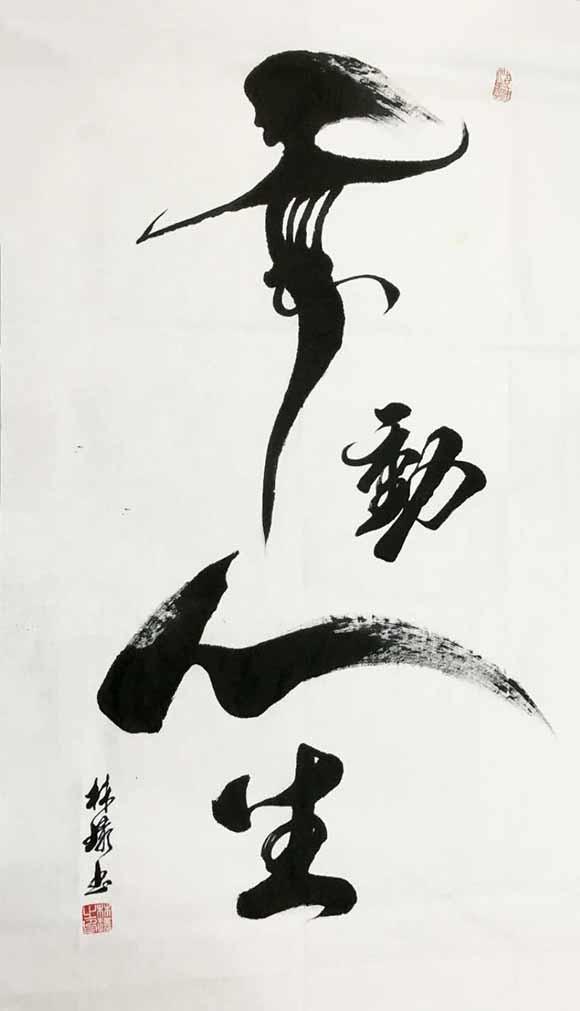 舞動人生
林 书